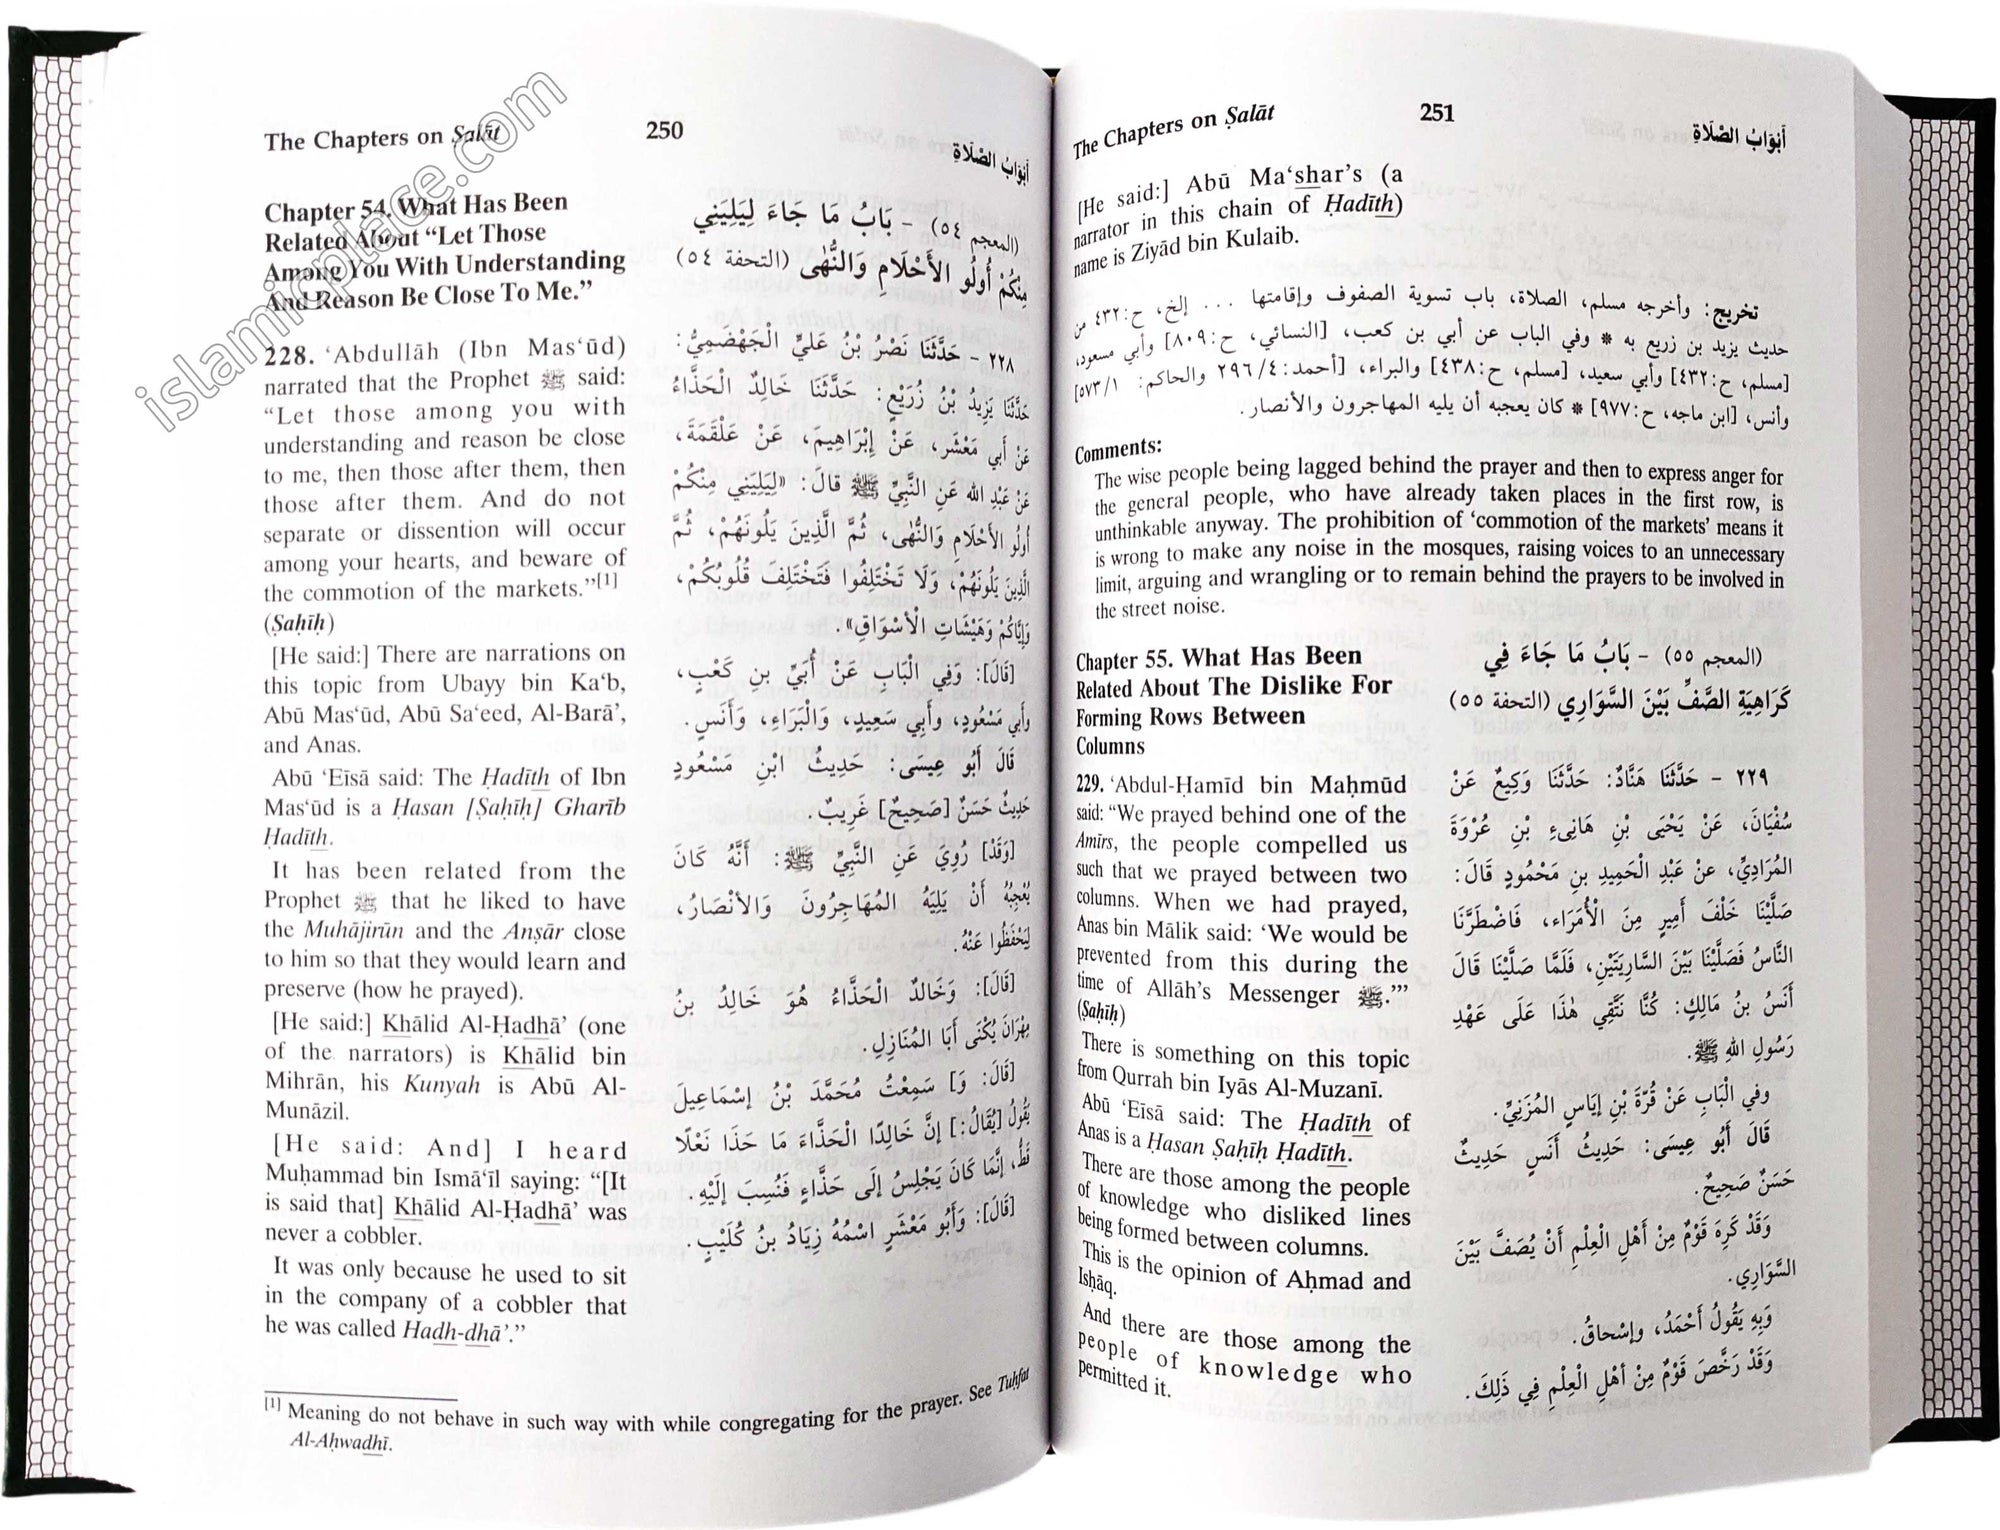 islamicplace.com
The Chapters on Ṣalāt
250
أبْوَابُ الصَّلَاةِ
Chapter 54. What Has Been
Related About “Let Those
Among You With Understanding
And Reason Be Close To Me.”
228. ‘Abdullāh (Ibn Mas‘ūd)
narrated that the Prophet ﷺ said:
“Let those among you with
understanding and reason be close
to me, then those after them, then
those after them. And do not
separate or dissention will occur
among your hearts, and beware of
the commotion of the markets.”[1]
(Ṣaḥīḥ)
[He said:] There are narrations on
this topic from Ubayy bin Ka‘b,
Abū Mas‘ūd, Abū Sa‘eed, Al-Barā’,
and Anas.
Abū ‘Eīsā said: The Ḥadīth of Ibn
Mas‘ūd is a Ḥasan [Ṣaḥīḥ] Gharīb
Ḥadīth.
It has been related from the
Prophet ﷺ that he liked to have
the Muhājirūn and the Anṣār close
to him so that they would learn and
preserve (how he prayed).
[He said:] Khālid Al-Ḥadhā’ (one
of the narrators) is Khālid bin
Mihrān, his Kunyah is Abū Al-
Munāzil.
[He said: And] I heard
Muḥammad bin Ismā‘īl saying: “[It
is said that] Khālid Al-Ḥadhā’ was
never a cobbler.
It was only because he used to sit
in the company of a cobbler that
he was called Hadh-dhā’.”
(المعجم ٥٤) - بَابُ مَا جَاءَ لِيَلِيَنِي
مِنْكُمْ أُولُو الأَحْلَامِ وَالنُّهٰى (التحفة ٥٤)
٢٢٨ - حَدَّثَنَا نَصْرُ بْنُ عَلِيٍّ الْجَهْضَمِيُّ:
حَدَّثَنَا يَزِيدُ بْنُ زُرَيْعٍ: حَدَّثَنَا خَالِدٌ الْحَذَّاءُ
عَنْ أَبِي مَعْشَرٍ، عَنْ إِبْرَاهِيمَ، عَنْ عَلْقَمَةَ،
عَنْ عَبْدِ الله عَنِ النَّبِيِّ ﷺ قَالَ: «لِيَلِيَنِي مِنْكُمْ
أُولُو الأَحْلَامِ وَالنُّهَى، ثُمَّ الَّذِينَ يَلُونَهُمْ، ثُمَّ
الَّذِينَ يَلُونَهُمْ، وَلَا تَخْتَلِفُوا فَتَخْتَلِفَ قُلُوبُكُمْ،
وَإِيَّاكُمْ وَهَيْشَاتِ الْأَسْوَاقِ».
[قَالَ]: وَفِي الْبَابِ عَنْ أُبَيِّ بنِ كَعْبٍ،
وأَبِي مَسْعُودٍ، وأَبِي سَعِيدٍ، وَالْبَرَاءِ، وَأَنَسٍ.
قَالَ أَبُو عِيسَى: حَدِيثُ ابْنِ مَسْعُودٍ
حَدِيثٌ حَسَنٌ [صَحِيحٌ] غَرِيبٌ.
[وَقَدْ] رُوِيَ عَنِ النَّبِيِّ ﷺ: أَنَّهُ كَانَ
يُعْجِبُهُ أَنْ يَلِيَهُ الْمُهَاجِرُونَ وَالأَنْصَارُ،
لِيَحْفَظُوا عَنْهُ.
[قَالَ]: وَخَالِدٌ الْحَذَّاءُ هُوَ خَالِدُ بنُ
مِهْرَانَ يُكْنَى أَبَا الْمُنَازِلِ.
[قَالَ: وَ] سَمِعْتُ مُحَمَّدَ بْنُ إسْمَاعِيلَ
يَقُولُ [يُقَالُ:] إِنَّ خَالِدًا الْحَذَّاءَ مَا حَذَا نَعْلًا
قَطُّ، إِنَّمَا كَانَ يَجْلِسُ إِلَى حَذَّاءٍ فَنُسِبَ إِلَيْهِ.
[قَالَ]: وَأَبُو مَعْشَرٍ اسْمُهُ زِيَادُ بنُ كُلَيْبٍ.
[1] Meaning do not behave in such way with while congregating for the prayer. See Tuḥfat
Al-Aḥwadhī.
The Chapters on Ṣalāt
251
أَبْوَابُ الصَّلَاةِ
[He said:] Abū Ma‘shar’s (a
narrator in this chain of Ḥadīth)
name is Ziyād bin Kulaib.
تخريج: وأخرجه مسلم، الصلاة، باب تسوية الصفوف وإقامتها ... إلخ، ح:٤٣٢ من
حديث يزيد بن زريع به * وفي الباب عن أبي بن كعب، [النسائي، ح:٨٠٩] وأبي مسعود،
[مسلم، ح:٤٣٢] وأبي سعيد، [مسلم، ح:٤٣٨] والبراء، [أحمد:٤/ ٢٩٦ والحاكم: ١/ ٥٧٣]
وأنس، [ابن ماجه، ح:٩٧٧] * كان يعجبه أن يليه المهاجرون والأنصار.
Comments:
The wise people being lagged behind the prayer and then to express anger for
the general people, who have already taken places in the first row, is
unthinkable anyway. The prohibition of ‘commotion of the markets’ means it
is wrong to make any noise in the mosques, raising voices to an unnecessary
limit, arguing and wrangling or to remain behind the prayers to be involved in
the street noise.
Chapter 55. What Has Been
Related About The Dislike For
Forming Rows Between
Columns
229. ‘Abdul-Ḥamīd bin Maḥmūd
said: “We prayed behind one of the
Amīrs, the people compelled us
such that we prayed between two
columns. When we had prayed,
Anas bin Mālik said: ‘We would be
prevented from this during the
time of Allāh’s Messenger ﷺ.’”
(Ṣaḥīḥ)
There is something on this topic
from Qurrah bin Iyās Al-Muzanī.
Abū ‘Eīsā said: The Ḥadīth of
Anas is a Ḥasan Ṣaḥīḥ Ḥadīth.
There are those among the people
of knowledge who disliked lines
being formed between columns.
This is the opinion of Aḥmad and
Isḥāq.
And there are those among the
people of knowledge who
permitted it.
(المعجم ٥٥) - بَابُ مَا جَاءَ فِي
كَرَاهِيَةِ الصَّفِّ بَيْنَ السَّوَارِي (التحفة ٥٥)
٢٢٩ - حَدَّثَنَا هَنَّادٌ: حَدَّثَنَا وَكِيعٌ عَنْ
سُفْيَانَ، عَنْ يَحْيَى بْنِ هَانِىءِ بْنِ عُرْوَةَ
الْمُرَادِيِّ، عَنْ عَبْدِ الْحَمِيدِ بنِ مَحْمُودٍ قَالَ:
صَلَّيْنَا خَلْفَ أَمِيرٍ مِنَ الْأُمَرَاءِ، فَاضْطَرَّنَا
النَّاسُ فَصَلَّيْنَا بَيْنَ السَّارِيَتَيْنِ، فَلَمَّا صَلَّيْنَا قَالَ
أَنَسُ بنُ مَالِكٍ: كُنَّا نَتَّقِي هٰذَا عَلَى عَهْدِ
رَسُولِ اللهِ ﷺ.
وفي الْبَابِ عَنْ قُرَّةَ بْنِ إيَاسٍ الْمُزَنِيِّ.
قَالَ أَبُو عِيسَى: حَدِيثُ أَنَسٍ حَدِيثٌ
حَسَنٌ صَحِيحٌ.
وَقَدْ كَرِهَ قَوْمٌ مِنْ أَهْلِ الْعِلْمِ أَنْ يُصَفَّ بَيْنَ
السَّوَارِي.
وَبِهِ يَقُولُ أَحْمَدُ، وإسْحاقُ.
وَقَدْ رَخَّصَ قَوْمٌ مِنْ أَهْلِ الْعِلْمِ فِي ذَلِكَ.